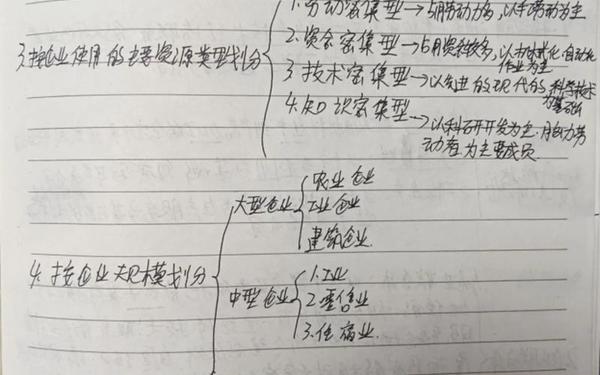 1.劳动密集型→占用劳动力多,以手劳动为主
3.按企业使用的主要资源类型划分
2.资金密集型→占用资金较多,以机械化、自动化作业为主
3 技术密集型→以先进的现代的科学技术为基础
4.知识密集型
→以科研开发为主.脑力劳
动者为主要成员.
大型企业
农业企业
工业企业
建筑企业.
4.按企业规模划分
中型企业
1.工业
2.零售业
3.住宿业.